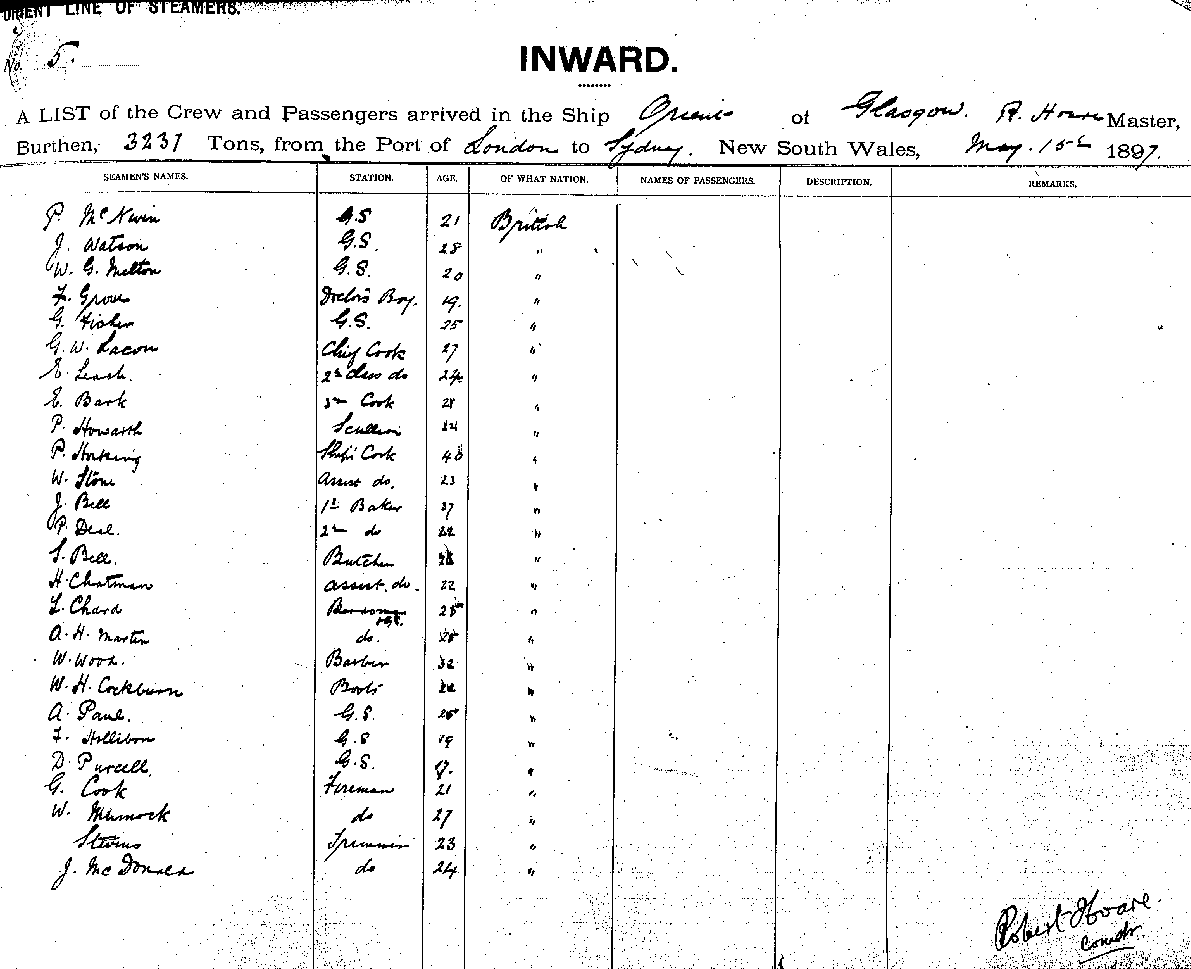 ORIENT LINE OF STEAMERS.
No. 5.
INWARD.
A LIST of the Crew and Passengers arrived in the Ship of Glasgow. R. Hoare Master,
Burthen, 3231 Tons, from the Port of London to Sydney. New South Wales, May. 15th 1897.
SEAMEN'S NAMES. STATION. AGE. OF WHAT NATION. NAMES OF PASSENGERS. DESCRIPTION. REMARKS.
P. G.S 21 British
J. Watson G.S. 28 "
W. G. Melton G.S. 20 "
F. Doctors Boy. 19. "
G. Fisher G.S. 25 "
G. W. Lacon Chief Cook 27 "
E. Leash. 2nd Class do 24 "
E. Bark Cook "
P. Howarth "
P. Hosking Ship's Cook "
W. Stone Assist do. 23 "
J. Bell 1st Baker "
P. Deal. 2nd do "
Bell. Butcher "
H. Chatman assist. do. 22 "
Chard "
A. H. Martin do. "
W. Wood. Barber 32 "
W. H. Cockburn Boots "
A. Paul. G.S. "
F. Hollibon G.S 19 "
D. Purcell. G.S. "
G. Cook Fireman 21 "
W. do 27 "
Stevens Trimmer 23 "
J. McDonald do 24 "
Robert Hoare.
Comdr.